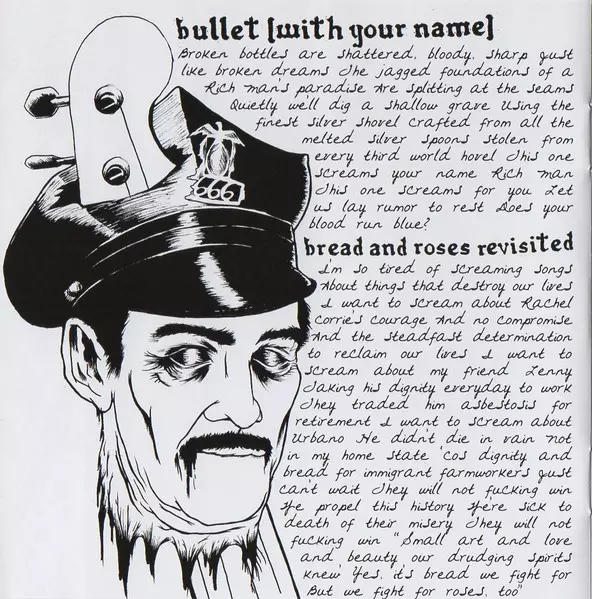 bullet [with your name]
Broken bottles are shattered, bloody, sharp Just
like broken dreams The jagged foundations of a
Rich man's paradise Are splitting at the seams
Quietly we'll dig a shallow grave Using the
finest silver shovel Crafted from all the
melted silver spoons Stolen from
every third world hovel This one
screams your name Rich man
This one screams for you Let
us lay rumor to rest Does your
blood run blue?
666
bread and roses revisited
I'm so tired of screaming songs
About things that destroy our lives
I want to scream about Rachel
Corrie's courage And no compromise
And the steadfast determination
to reclaim our lives I want to
scream about my friend Lenny
Taking his dignity everyday to work
They traded him asbestosis for
retirement I want to scream about
Urbano He didn't die in vain Not
in my home state 'Cos dignity and
bread for immigrant farmworkers Just
can't wait They will not fucking win
We propel this history We're sick to
death of their misery They will not
fucking win "Small art and love
and beauty our drudging spirits
knew Yes, it's bread we fight for
But we fight for roses, too"